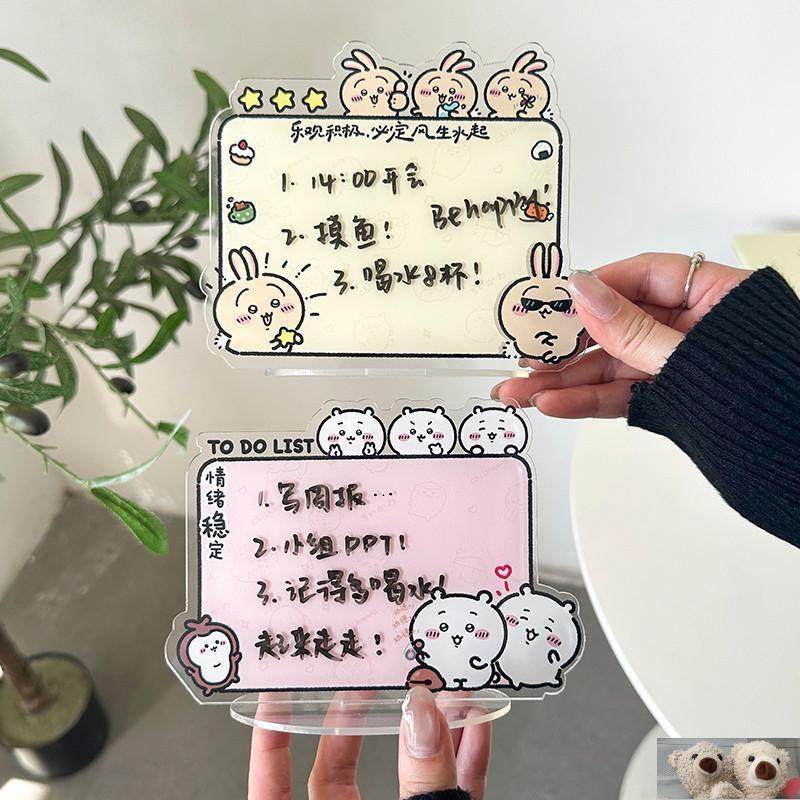 乐观积极,必定风生水起
1. 14:00开会
Be happy!
2. 摸鱼!
3. 喝水8杯!
TO DO LIST
情绪稳定
1. 写周报…
2. 小组PPT!
3. 记得多喝水!
起来走走!